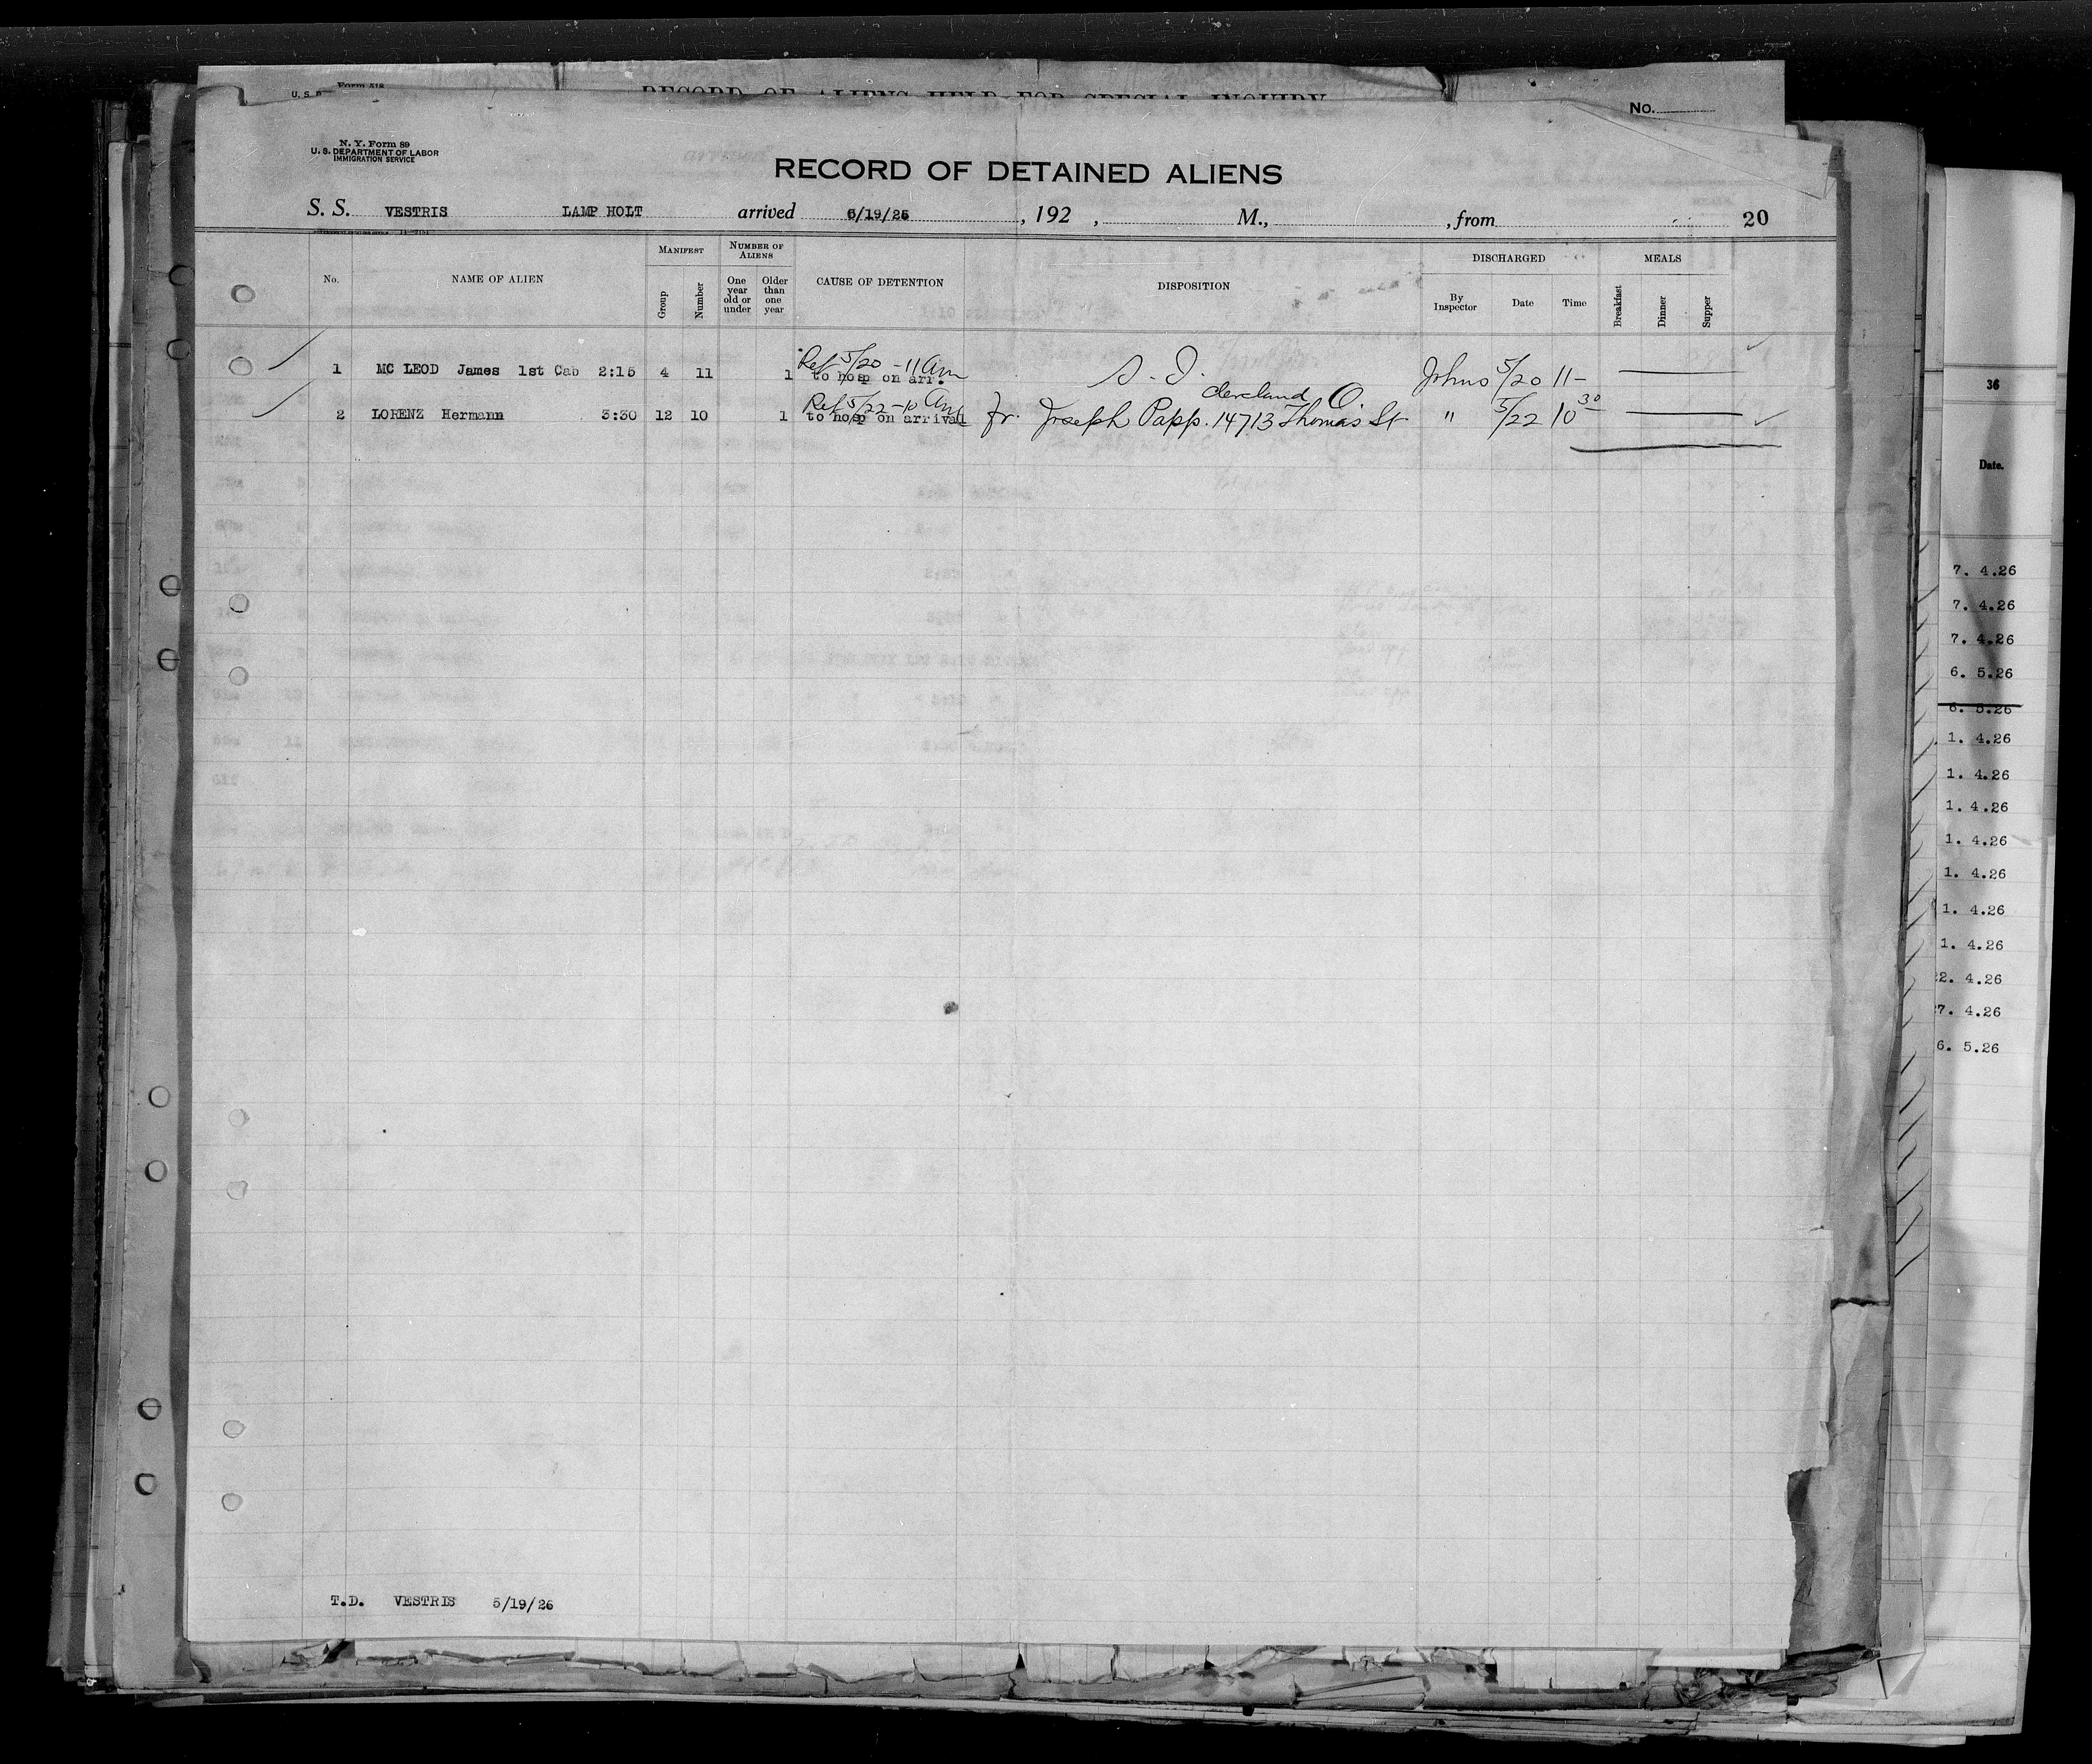 U. S. D Form 518
RECORD OF ALIENS HELD FOR SPECIAL INQUIRY
No.
N. Y. Form 89
U. S. DEPARTMENT OF LABOR
IMMIGRATION SERVICE
RECORD OF DETAINED ALIENS
S. S. VESTRIS LAMP HOLT arrived 6/19/26, 192 , M., , from 20
MANIFEST NUMBER OF ALIENS DISCHARGED MEALS
No. NAME OF ALIEN Group Number One year old or under Older than one year CAUSE OF DETENTION DISPOSITION By Inspector Date Time Breakfast Dinner Supper
Ref 5/20 - 11 Am
1 MC LEOD James 1st Cab 2:15 4 11 1 to hosp on arr. S. I. Johns 5/20 11-
Ref 5/22 - 10 Am Cleveland O.
2 LORENZ Hermann 3:30 12 10 1 to hosp on arrival fr. Joseph Papp. 14713 Thomas St " 5/22 10 30
T.D. VESTRIS 5/19/26
36
Date.
7. 4.26
7. 4.26
7. 4.26
6. 5.26
6. 5.26
1. 4.26
1. 4.26
1. 4.26
1. 4.26
1. 4.26
1. 4.26
1. 4.26
22. 4.26
27. 4.26
6. 5.26